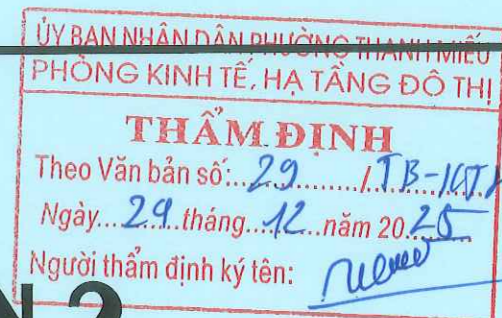 ỦY BAN NHÂN DÂN PHƯỜNG THANH MIẾU
PHÒNG KINH TẾ, HẠ TẦNG ĐÔ THỊ
THẨM ĐỊNH
Theo Văn bản số:...29.........../.TB-KT
Ngày...29.tháng...12...năm 20.25
Người thẩm định ký tên:
N 2